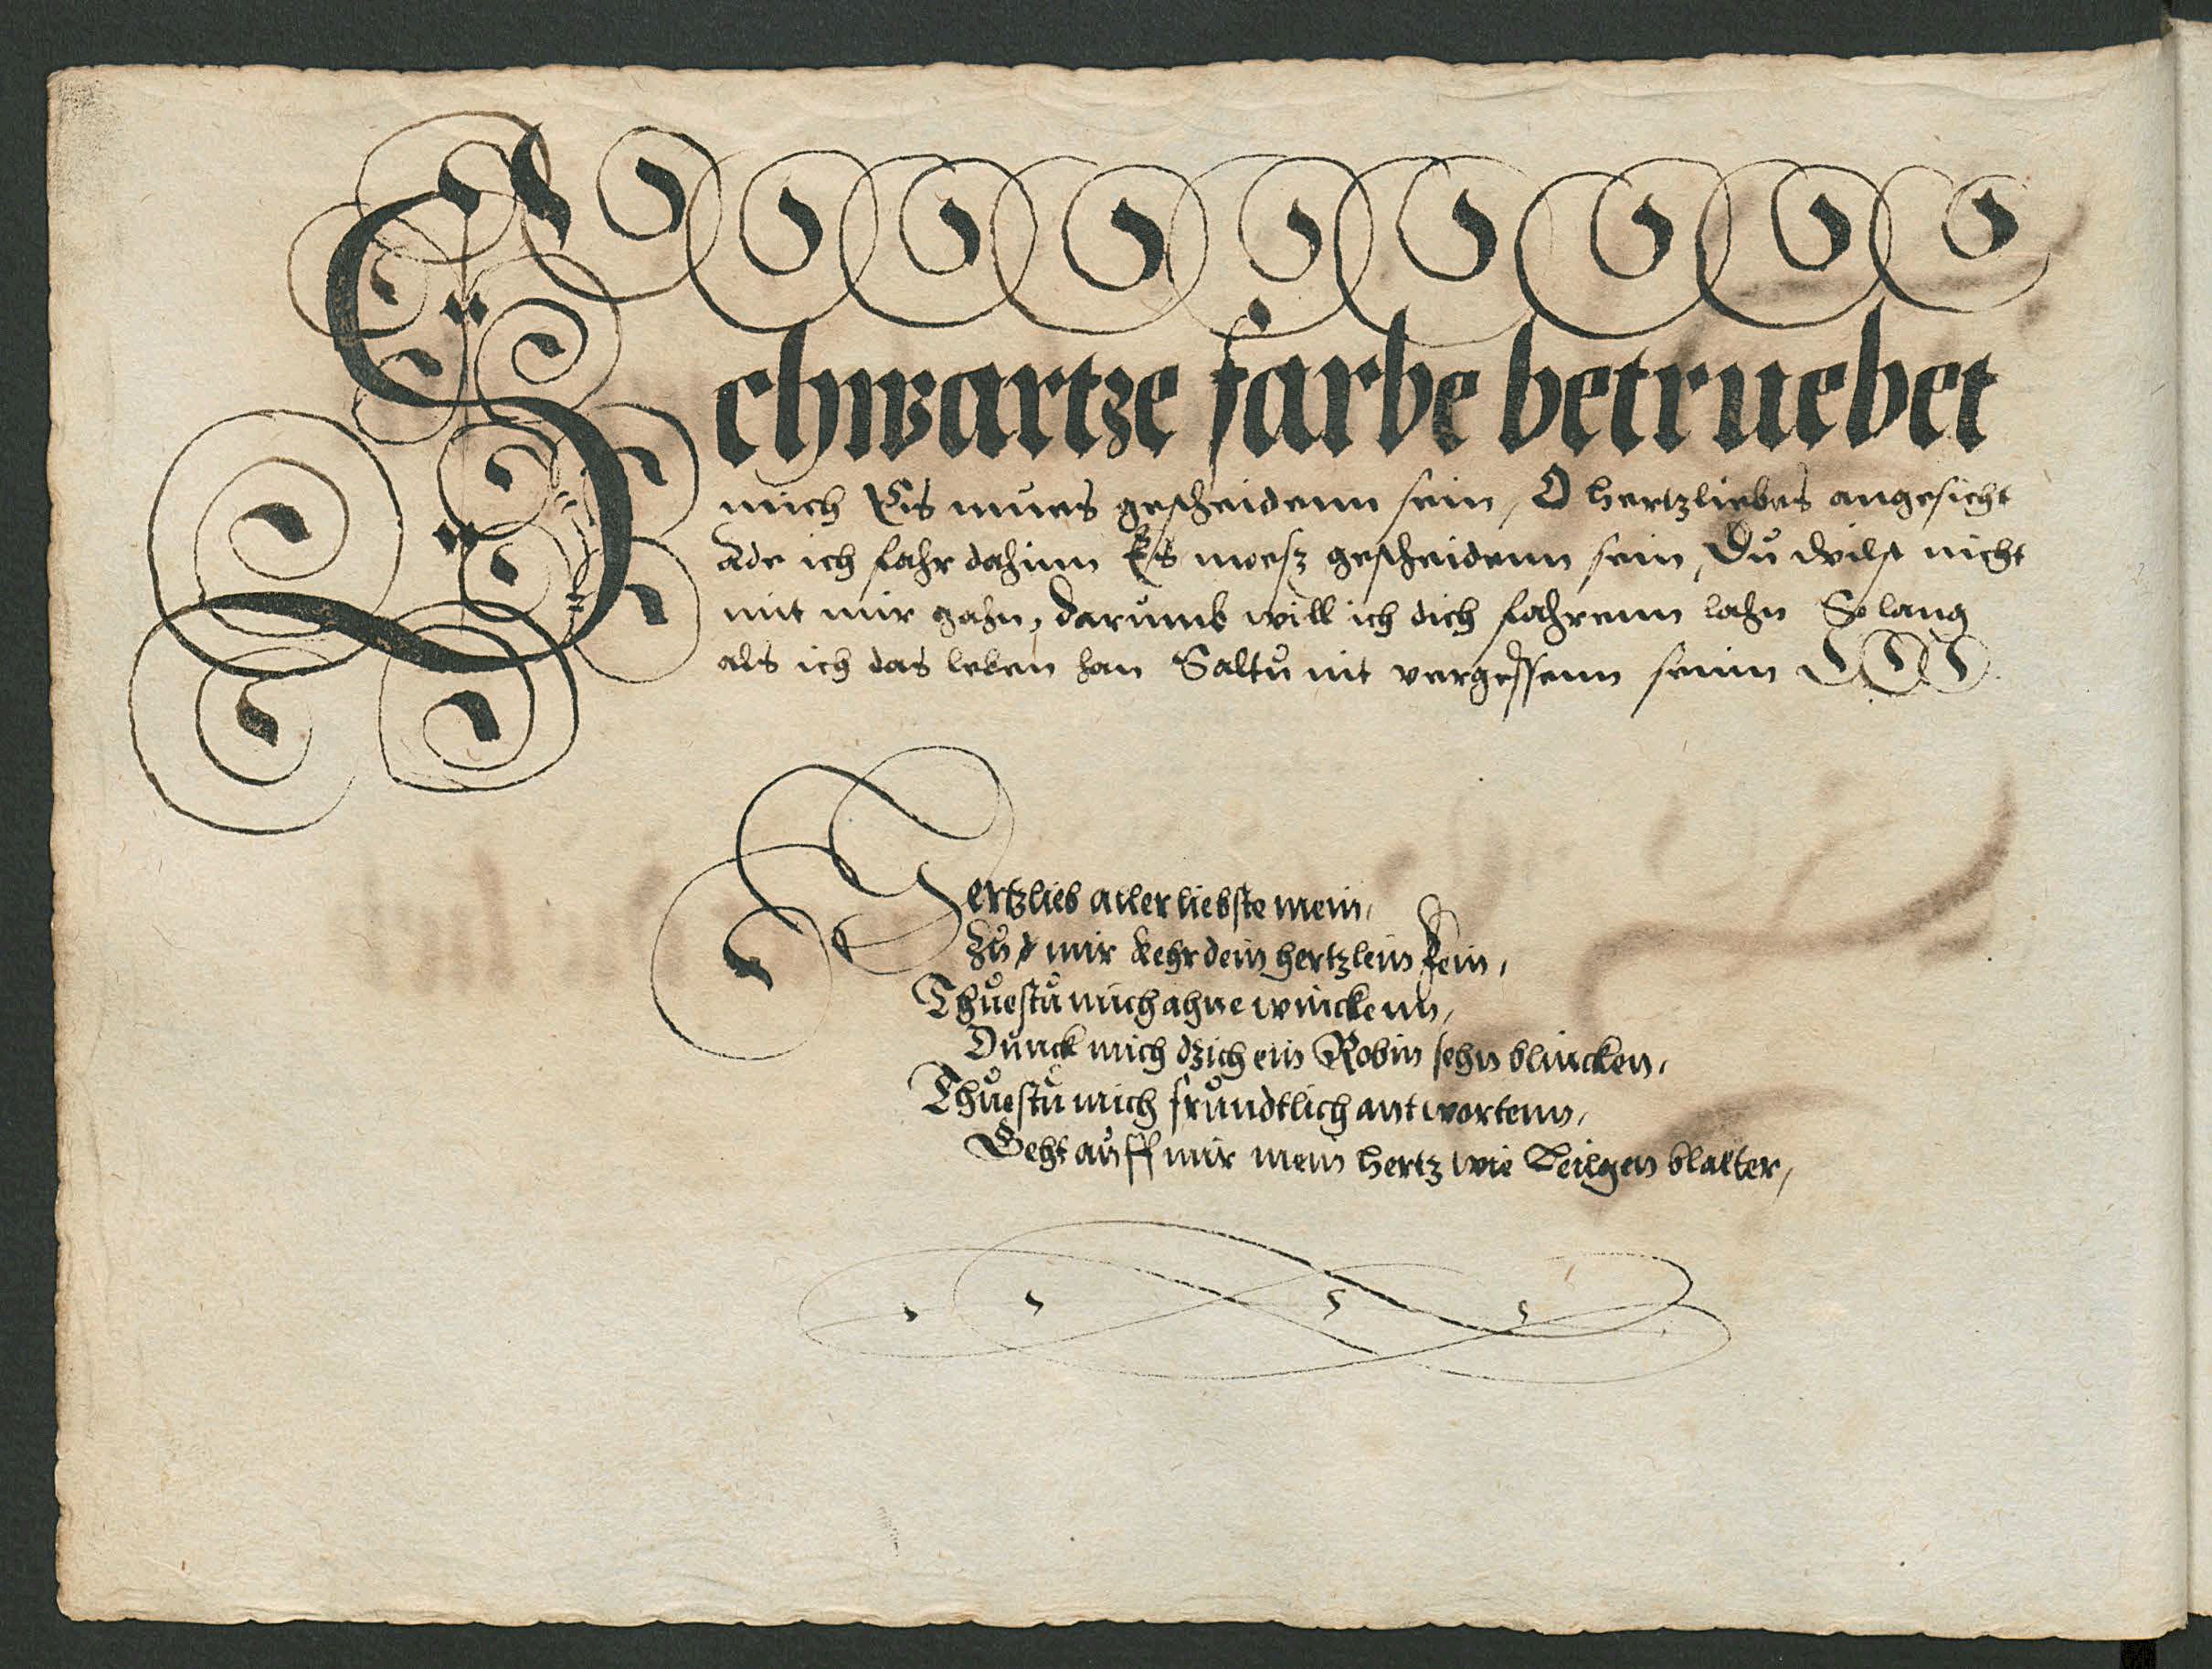 Schwartze farbe betruebet
mich Eis mues gescheidenn sein, O hertzliebes angesicht
Ade ich fahr dahinn Es moesz gescheidenn sein, Du wilst nicht
mit mir gahn, darumb will ich dich fahrenn lahn So lang
als ich das leben han Saltu nit vergessenn seinn
Hertzlieb allerliebste mein,
Zu mir kehr dein hertzlein fein,
Thuestu mich ahne winckenn,
Dunck mich ich ein Robin sehn blincken,
Thuestu mich frundtlich antwortenn,
Geht auff mir mein hertz wie Leilgen blatter,